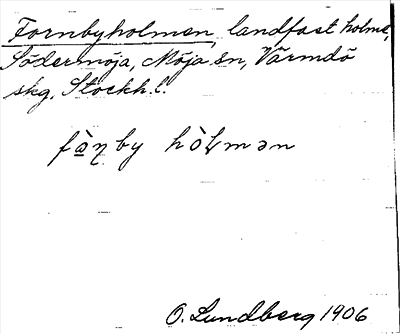 Fornbyholmen, landfast holme,
Södermöja, Möja sn, Värmdö
skg, Stockh. l.
fà̱ɳby hòɫmən
O. Lundberg 1906